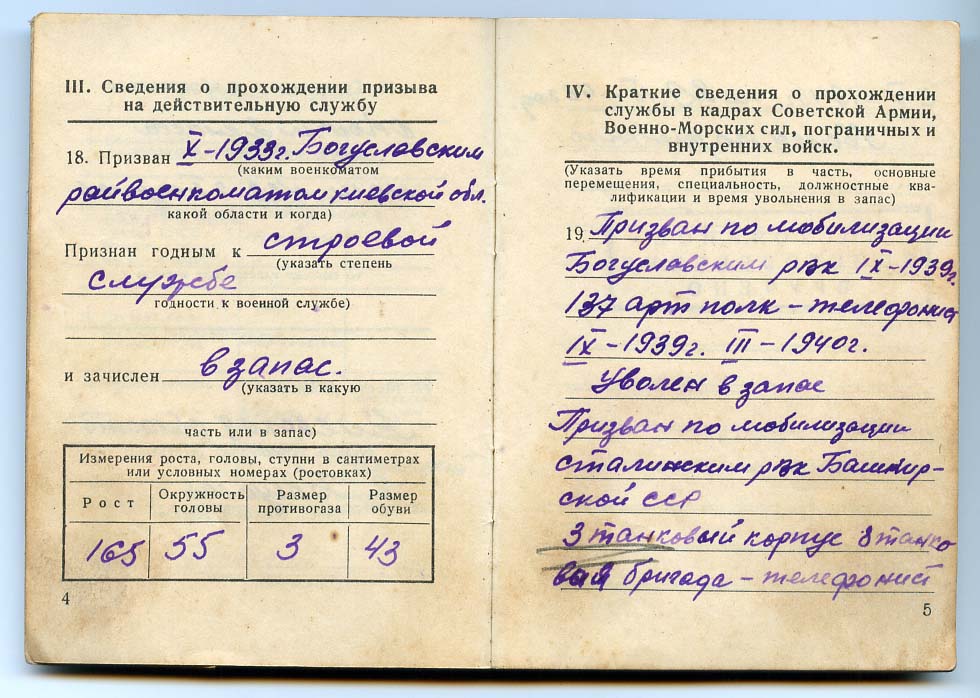 III. Сведения о прохождении призыва
на действительную службу
18. Призван X-1933г. Богуславским
(каким военкоматом
райвоенкоматом киевской обл.
какой области и когда)
Признан годным к строевой
(указать степень
службе
годности к военной службе)
и зачислен в запас.
(указать в какую
часть или в запас)
Измерения роста, головы, ступни в сантиметрах
или условных номерах (ростовках)
Рост
Окружность
головы
Размер
противогаза
Размер
обуви
165 55 3 43
4
IV. Краткие сведения о прохождении
службы в кадрах Советской Армии,
Военно-Морских сил, пограничных и
внутренних войск.
(Указать время прибытия в часть, основные
перемещения, специальность, должностные ква-
лификации и время увольнения в запас)
19 Призван по мобилизации
Богуславским рвк IX-1939г.
137 арт полк - телефонист
IX-1939г. III-1940г.
Уволен в запас
Призван по мобилизации
сталинским рвк Башкир-
ской сср
3 танковый корпус 8 танко
вая бригада - телефонист
5